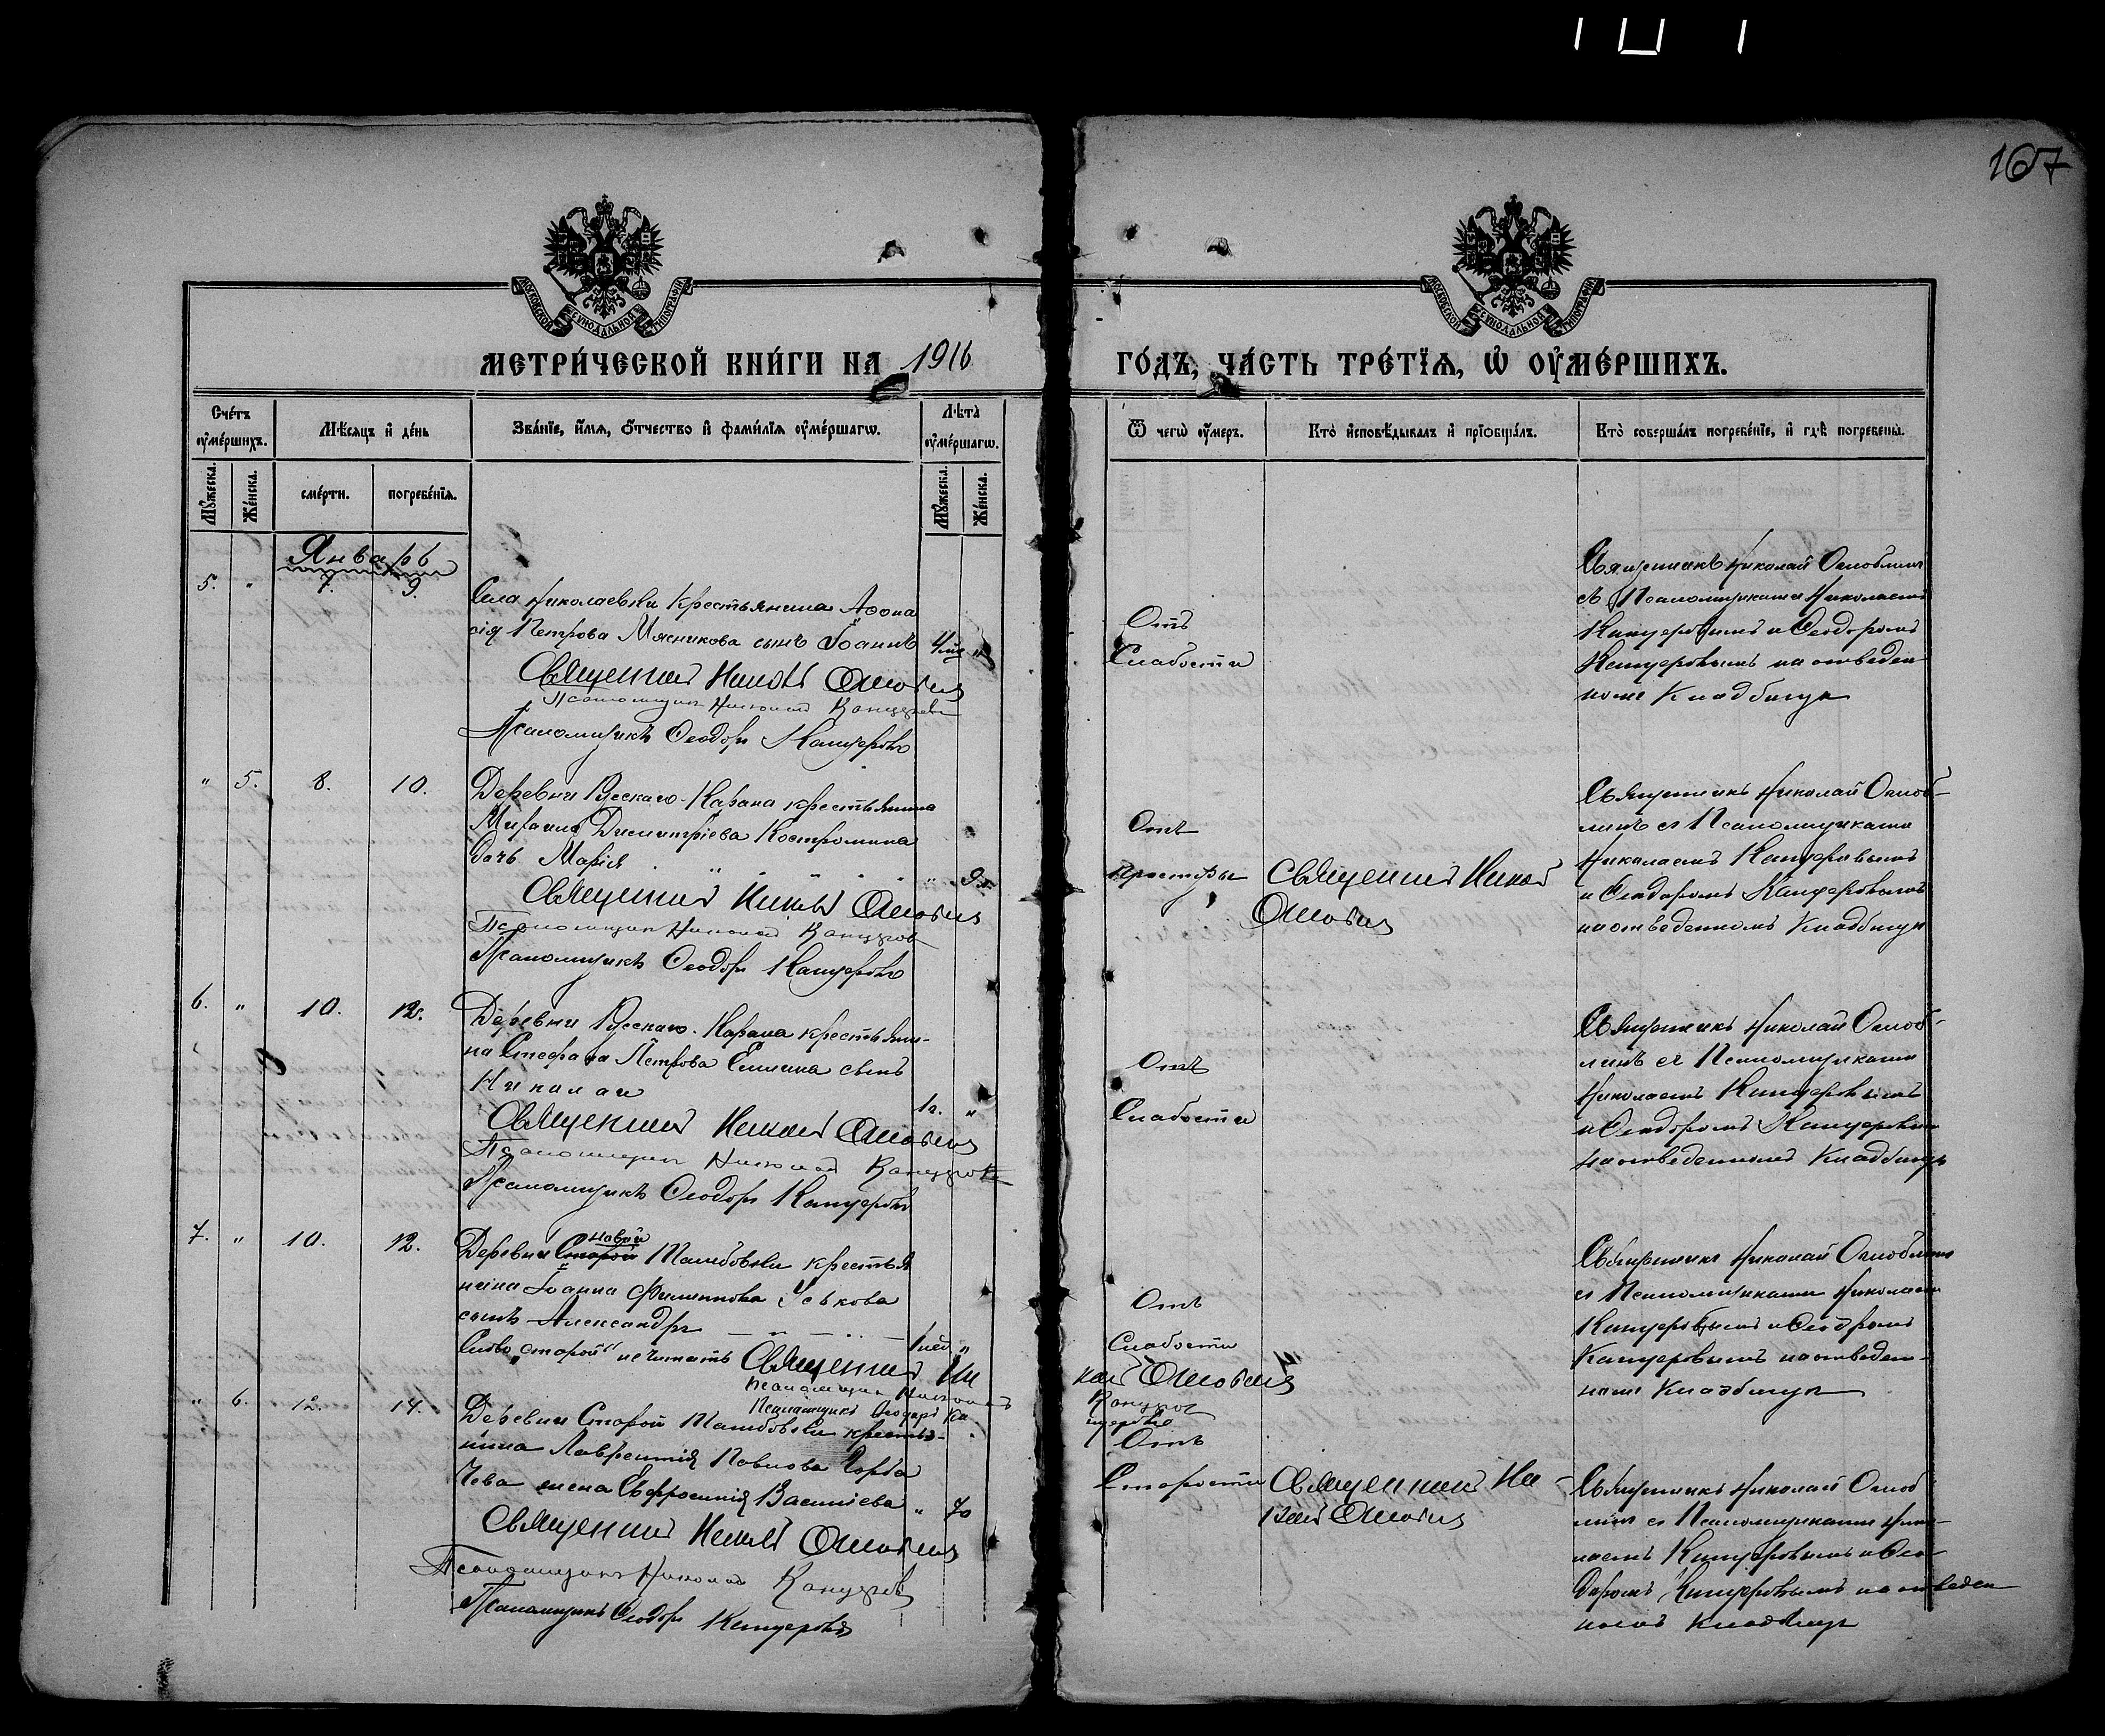 167
МОСКОВСКОЙ СУНОДАЛЬНОЙ ТИПОГРАФІИ
МОСКОВСКОЙ СУНОДАЛЬНОЙ ТИПОГРАФІИ
МЕТРИ́ЧЕСКОЙ КНИ́ГИ НА 1916
ГО́ДЪ, ЧА́СТЬ ТРЕ́ТЇѦ, Ѡ҆ ОУ҆МЕ́РШИХЪ.
Сче́тъ оу҆ме́ршихъ.
Мѣ́сяцъ и҆ де́нь
Зва́нїе, и҆́мѧ, ѻ҆́тчество и҆ фами́лїѧ оу҆ме́ршагѡ.
Лѣ́та оу҆ме́ршагѡ.
Ѿ чегѡ̀ оу҆́меръ.
Кто̀ и҆сповѣ́дывалъ и҆ прїѡбща́лъ.
Кто̀ соверша́лъ погребе́нїе, и҆ гдѣ̀ погребены̀.
Мꙋ́жеска.
Же́нска.
сме́рти.
погребе́нїѧ.
Мꙋ́жеска.
Же́нска.
Январь
5. " 7. 9.
Села Николаевки крестьянина Афона
сія Петрова Мясникова сынъ Іоаннъ
Священникъ Николай Оглоблинъ
Псаломщикъ Николай Канцеровъ
Псаломщикъ Ѳеодоръ Канцеровъ
Отъ
Слабости
Священникъ Николай Оглоблинъ
съ Псаломщиками Николаемъ
Канцеровымъ и Ѳеодоромъ
Канцеровымъ на отведен
номъ Кладбищѣ
" 5. 8. 10.
Деревни Русскаго-Карана крестьянина
Михаила Димитріева Костромина
дочь Марія
Священникъ Николай Оглоблинъ
Псаломщикъ Николай Канцеровъ
Псаломщикъ Ѳеодоръ Канцеровъ
Отъ
простуды
Священникъ Николай
Оглоблинъ
Священникъ Николай Оглоб-
линъ съ Псаломщиками
Николаемъ Канцеровымъ
и Ѳеодоромъ Канцеровымъ
на отведенномъ Кладбищѣ
6. " 10. 12.
Деревни Русскаго-Карана крестьяни-
на Стефана Петрова Елкина сынъ
Николай
1 г. "
Священникъ Николай Оглоблинъ
Псаломщикъ Николай Канцеровъ
Псаломщикъ Ѳеодоръ Канцеровъ
Отъ
Слабости
Священникъ Николай Оглоб-
линъ съ Псаломщиками
Николаемъ Канцеровымъ
и Ѳеодоромъ Канцеровымъ
на отведенномъ Кладбищѣ
7. " 10. 12.
новой
Деревни Старой Тамбовки крестья
нина Іоанна Филиппова Уськова
сынъ Александръ
1 нед. "
Слово "старой" не читать Священникъ Ни
колай Оглоблинъ
Псаломщикъ Николай Канцеровъ
Псаломщикъ Ѳеодоръ Канцеровъ
Отъ
Слабости
Священникъ Николай Оглоблинъ
съ Псаломщиками Николаемъ
Канцеровымъ и Ѳеодоромъ
Канцеровымъ на отведен-
номъ Кладбищѣ
" 6. 12. 14.
Деревни Старой Тамбовки крестья-
нина Лаврентія Павлова Горба
чева жена Евфросинія Васильева " 70
Священникъ Николай Оглоблинъ
Псаломщикъ Николай Канцеровъ
Псаломщикъ Ѳеодоръ Канцеровъ
Отъ
Старости
Священникъ Ни-
колай Оглоблинъ
Священникъ Николай Оглоб
линъ съ Псаломщиками Нико-
лаемъ Канцеровымъ и Ѳео-
доромъ Канцеровымъ на отведен
номъ Кладбищѣ